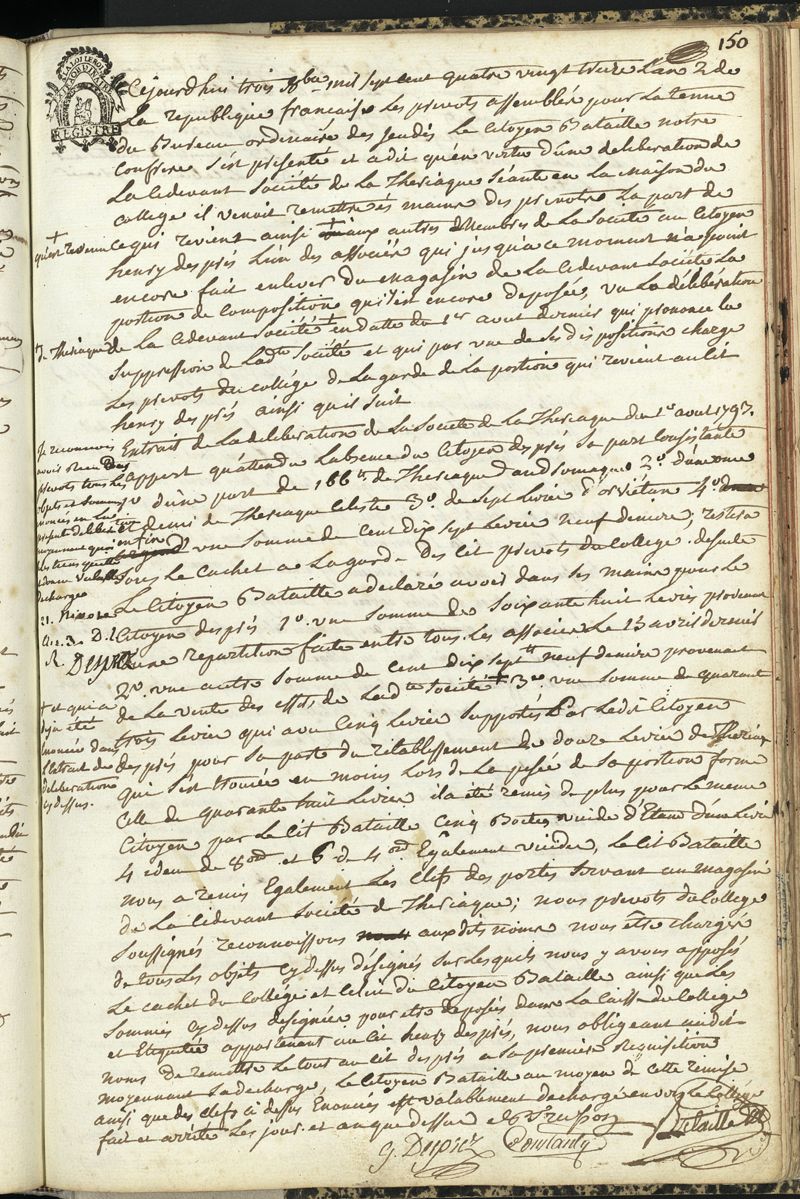 150
LA LOI LE ROI
REGISTRE
Cejourdhui trois 8bre mil sept cent quatre vingt treize L'an 2 de
La republique francaise Les prevots assemblés pour La tenue
du Bureau ordinaire des jeudis Le Citoyen Bataille notre
Confrere s'est presenté et a dit qu'en vertu d'une deliberation de
La Cidevant Société de La Theriaque séante en La maison du
College il venoit remettre es mains des prevots La part de
ce qui revient ainsi aux autres Membres de La Societé au Citoyen
henry des prés L'un des associés qui jusqu'a ce moment n'a point
encore fait enlever du Magasin de La Cidevant Societé La
portion de Composition qui s'en encore deposée, vu La délibération
de La Cidevant Société en datte du 1er aout dernier qui prononce la
Suppression de Lade Société et qui par une de ses dispositions charge
Les prevots du Collége de La garde de La portion qui revient au Cit
henry des prés ainsi qu'il suit
Extrait de La deliberation de La Societé de La Theriaque du 1er aout 1793.
appert qu'attendu L'absence du Citoyen des prés Sa part Consistante
1o d'une part de 166 lb de Theriaque d'andromaque 2o d'une
et demi de Theriaque Celeste 3o de Sept Livres d'orvietan 4o
enfin une Somme de Cent dix sept Livres neuf deniers; restera
sous Le Cachet a La garde Des Cit prevots du College. desuite
Le Citoyen Bataille a declaré avoir dans ses mains pour Le
Citoyen des prés 1o. une Somme de Soixante huit Livres provenant
d'une repartition faite entre tous Les associés Le 13 avril dernier
2o. une autre Somme de Cent dix sept lt neuf deniers provenant
de La vente des effets de Ladte Société + 3o une Somme de quarante
trois Livres qui avec Cinq Livres Supportés Par Ledit Citoyen
des prés pour Sa part du rétablissement de douze Livres de Theriaq
qui s'est trouvée en moins Lors de La pesée de Sa portion forme
Celle de quarante huit Livres il a été remis de plus pour Le meme
Citoyen par Le Cit Bataille Cinq Boetes vuides d'Etain d'une Livre
4 idem de 8 onc et 6 de 4 onc Egalement vuides, Le Cit Bataille
nous a remis Egalement Les Clefs des portes Servant au magasin
de La Cidevant Société de Theriaque; nous prevots du College
Soussignés reconnaissons auxdits noms nous être chargés
de tous Les objets Cy dessus désignés sur Lesquels nous y avons apposés
Le cachet du Collége et Celui du Citoyen Bataille ainsi que Les
Sommes Cy dessus designées pour etre deposés dans La Caisse du College
et Etiquetée appartenant au Cit henry des prés, nous obligeant audit
noms De remettre Le tout au cit des prés a La premiere requisition
moyennant Sa decharge, Le Citoyen Bataille au moyen de cette remise
ainsi que des clefs ci dessus Enoncées est valablement dechargé envers Le Collége
fait et arrêté Les jour et an que dessus
G. Desprez
Bataille
+
qui est revenu
+ De Theriaque
Je reconnois
avoir recu Des
prevots tous Les
objets et Sommes
enoncés en La
presente deliberation
moyennant quoi
Les tiens quitte
et donne valable
decharge
21. Nivose
a. 2. 3. D. L
R. Desprez
+ et qui a
deja eté
énoncée dans
L'Extrait de
deliberations
cy dessus.